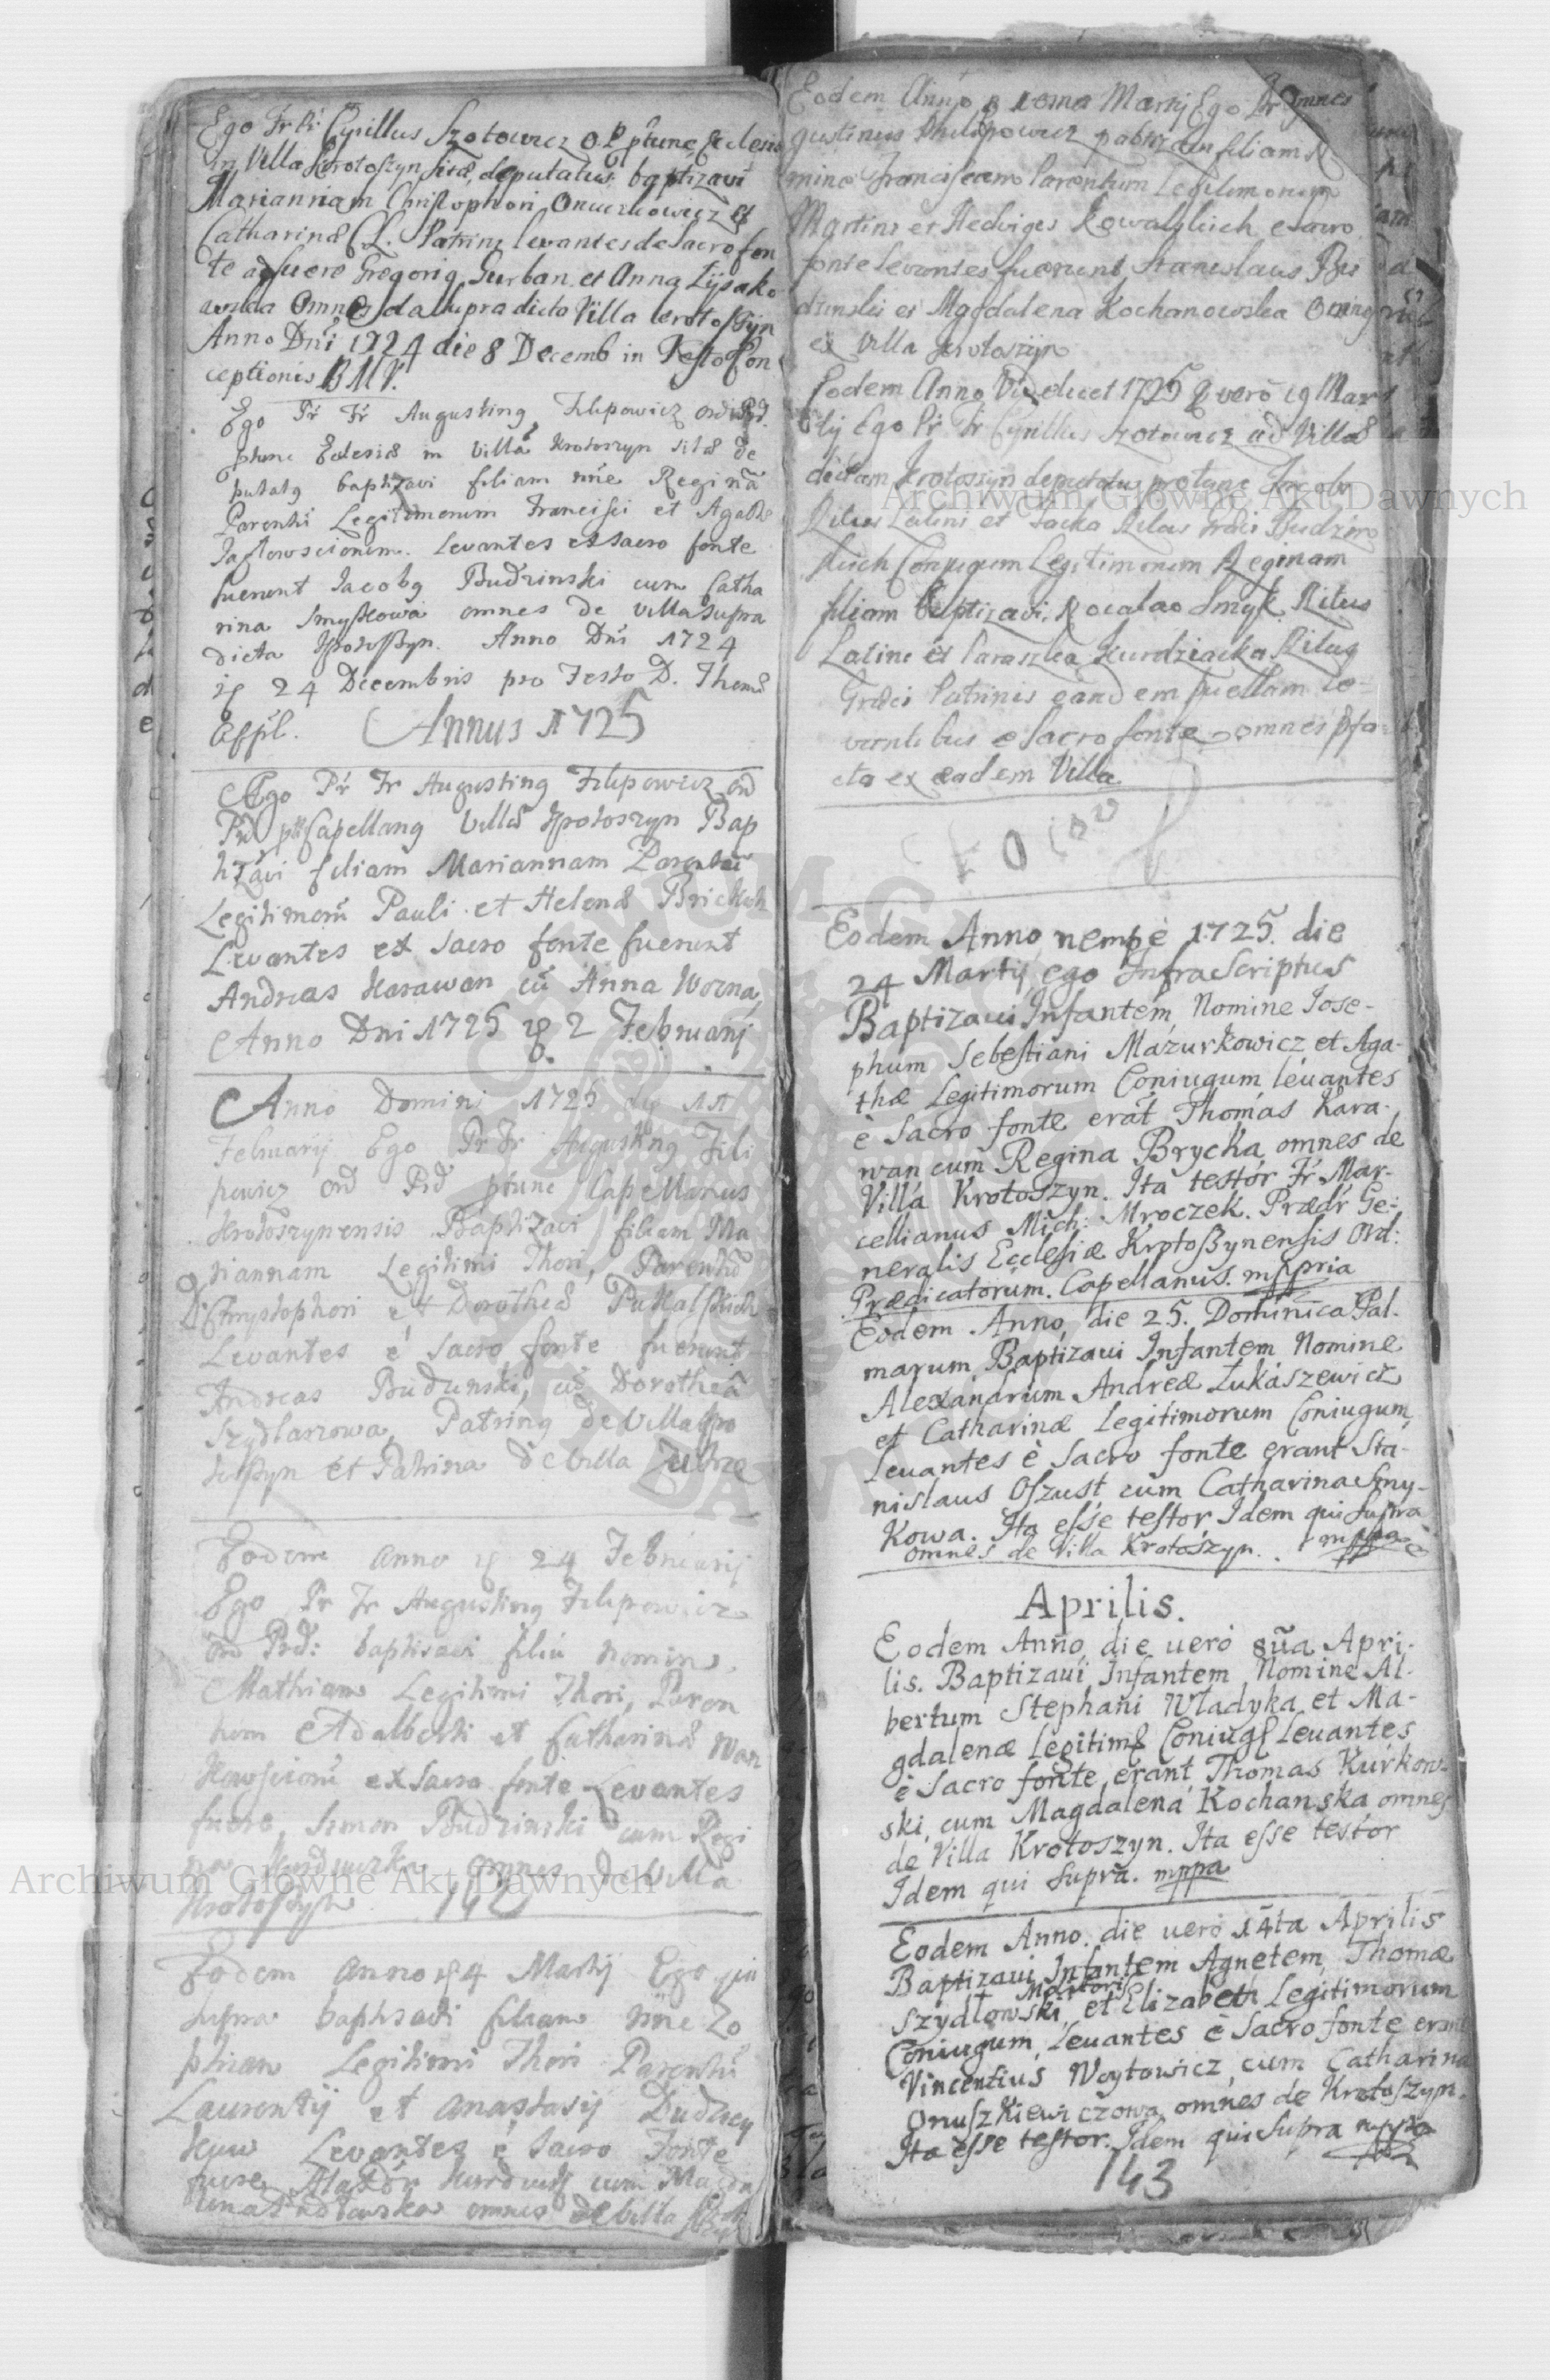 Ego Fr Pr Cyrillus Szotowicz O.P. ptunc Ecclesiæ
in Villa Krotoszyn sitæ, deputatus baptizavi
Mariannam Christophori Onuszkowicz et
Catharinæ C.L. Patrini levantes de sacro fon
te adfuere Gregorig Gurban et Anna Lysako
wska Omnes da supradicta Villa Krotoszyn
Anno Dni 1724 die 8 Decemb in Festo Con
ceptionis B M V.
Ego Pr Fr Augusting Filipowicz Ord Prd.
ptunc Eclesiæ in Villa Krotoszyn sitæ de
putatg baptizavi filiam nñe Reginã
Parentũ Legitimorum Francisci et Agathæ
Levantes ex sacro fonte
fuerunt Jacobg Budzinski cum Catha
rina Smyßkowa omnes de Villa supra
dicta Krotoßyn. Anno Dni 1724
24 Decembris pro Festo D. Thomæ
Appl. Annus 1725
Ego Pr Fr Augusting Filipowicz Ord
Prd ptt Capellang Villæ Krotoszyn Bap
tizavi filiam Mariannam Parentũ
Legitimorũ Pauli et Helenæ Brickich
Levantes ex sacro fonte fuerunt
Andreas Karawan cũ Anna Wozna
Anno Dni 1725 2 Februarij
Anno Domini 1725 die 11
Februarij Ego Pr Fr Augusting Fili
powicz Ord Prd ptunc Capellanus
Krotoszynensis Baptizavi filiam Ma
riannam Legitimi Thori, Parentũ
Chrystophori et Dorotheæ
Levantes è sacro fonte fuerunt
Andreas Budzinski, cũ Dorothea
Szydlarzowa, Patring de Villa Kro
toßyn et Patrina de Villa
Eodem anno 24 Februarij
Ego Pr Fr Augusting Filipowicz
Ord Prd: baptisavi filiũ nomine
Mathiam Legitimi Thori, Paren
tum Adalberti et Catharinæ
ex Sacro fonte Levantes
fuere, Simon Budzinski cum Regi
na omnes de Villa
Krotoßyn 142
Eodem anno 4 Martij Ego qui
supra baptisavi filiam nñe Zo
phiam Legitimi Thori Parentũ
Laurentij et Anastasij
Levantes è Sacro Fonte
fuere cum Magda
lena omnes de Villa
Eodem Anno Martij Ego Pr
gustinus Philipowicz baptizavi filiam N
mine Franciscam Parentum Legitimorum
Martini et Hedviges Kowalskich e sacro
fonte levantes fuerunt Stanislaus Bu
dzinski et Magdalena Kochanowska Omnes
ex Villa Krotoszyn
Eodem Anno Videlicet 1725 vero 19 Mar
tij Ego Pr Fr Cyrillus Szotowicz ad Villã
dictam Krotoszyn deputatus protunc Jacobi
Ritus Latini et Ritus Græci Budzins
kich Conjugum Legitimorum Reginam
filiam Baptizavi, Smyk Ritus
Latini et Paraszka Kurdziacka Ritus
Græci Patrinis eandem puellam le=
vantibus e Sacro fonte omnes
ex eadem Villa
Eodem Anno nempè 1725. die
24 Martij ego InfraScriptus
Baptizaui Infantem, Nomine Iose-
phum Sebestiani Mazurkowicz et Aga-
thæ Legitimorum Coniugum, leuantes
è Sacro fonte erãt Thomas Kara-
wan cum Regina Brycka omnes de
Villa Krotoszyn. Ita testor Fr Mar-
cellianus Mich: Mroczek. Prædr Ge-
neralis Ecclesiæ Krotoßynensis Ord:
Prædicatorum. Capellanus. mppria
Eodem Anno, die 25. Dominica Pal.
marum Baptizaui Infantem Nomine
Alexandrum Andreæ Łukaszewicz
et Catharinæ Legitimorum Coniugum,
Leuantes è Sacro fonte erant Sta-
nislaus Oszust cum Catharina Smy-
kowa. Ita esse testor Idem qui supra
omnes de Villa Krotoszyn. mppa
Aprilis.
Eodem Anno, die uerò 8ũa Apri-
lis. Baptizaui Infantem Nomine Al-
bertum Stephani Władyka et Ma-
gdalenæ Legitimꝝ Coniugꝝ Leuantes
è Sacro fonte, erant, Thomas Kurkow-
ski, cum Magdalena Kochanska omnes
de Villa Krotoszyn. Ita esse testor
Idem qui supra. mppa
Eodem Anno. die uerò 14ta Aprilis
Baptizaui Infantem Agnetem, Thomæ
Szydłowski, et Elizabeth Legitimorum
Coniugum, Leuantes è Sacro fonte erant
Vincentius Woytowicz, cum Catharina
Onuszkiewiczowa omnes de Krotoszyn.
Ita esse testor. Idem qui supra mppa
143
Archiwum Główne Akt Dawnych
Archiwum Główne Akt Dawnych